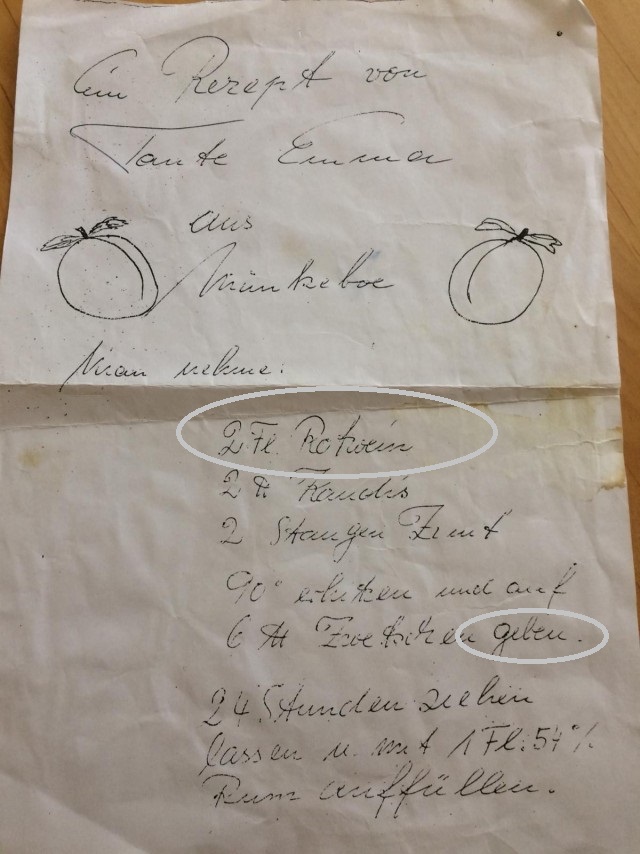 Ein Rezept von
Tante Emma
aus
Münkeboe
Man nehme:
2 Fl. Rotwein
2 ℔ Kandis
2 Stangen Zimt
90° erhitzen und auf
6 ℔ Zwetschen geben.
24 Stunden ziehen
lassen u. mit 1 Fl. 54%
Rum auffüllen.